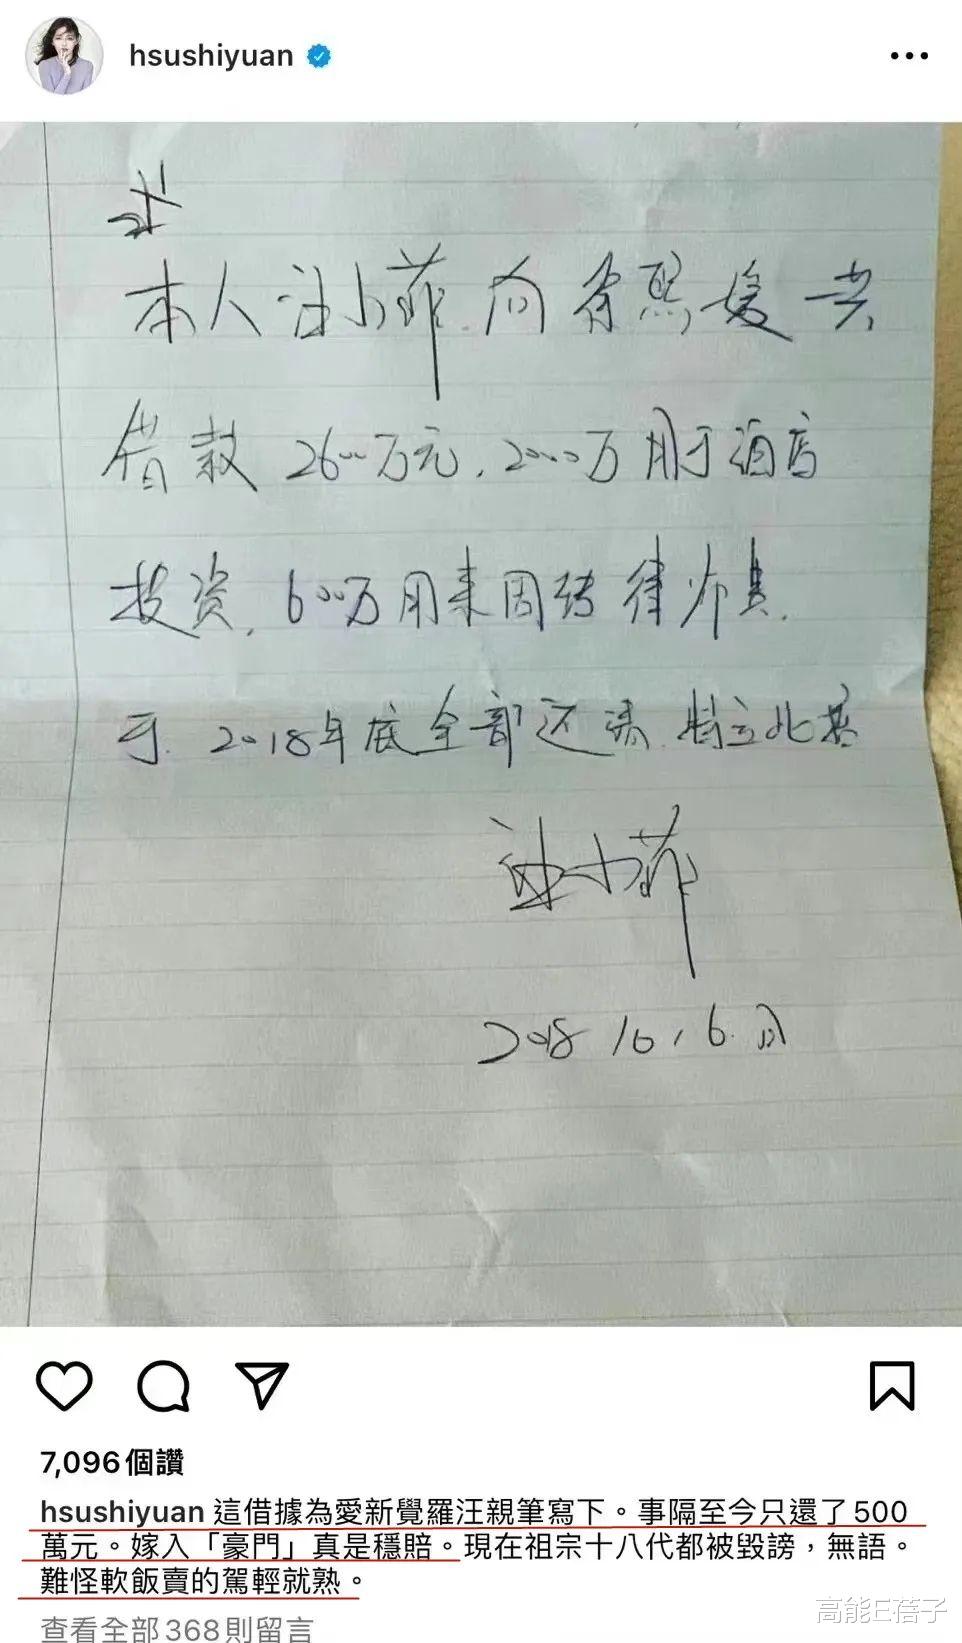 hsushiyuan
本人汪小菲.向徐熙媛共
借款2600万元,2000万用于酒店
投资,600万用来周转律师费.
于.2018年底全部还清.特立此据
汪小菲
2018 10,6.日
7,096個讚
hsushiyuan 這借據為愛新覺羅汪親筆寫下。事隔至今只還了500
萬元。嫁入「豪門」真是穩賠。現在祖宗十八代都被毀謗，無語。
難怪軟飯賣的駕輕就熟。
查看全部368則留言
高能E蓓子